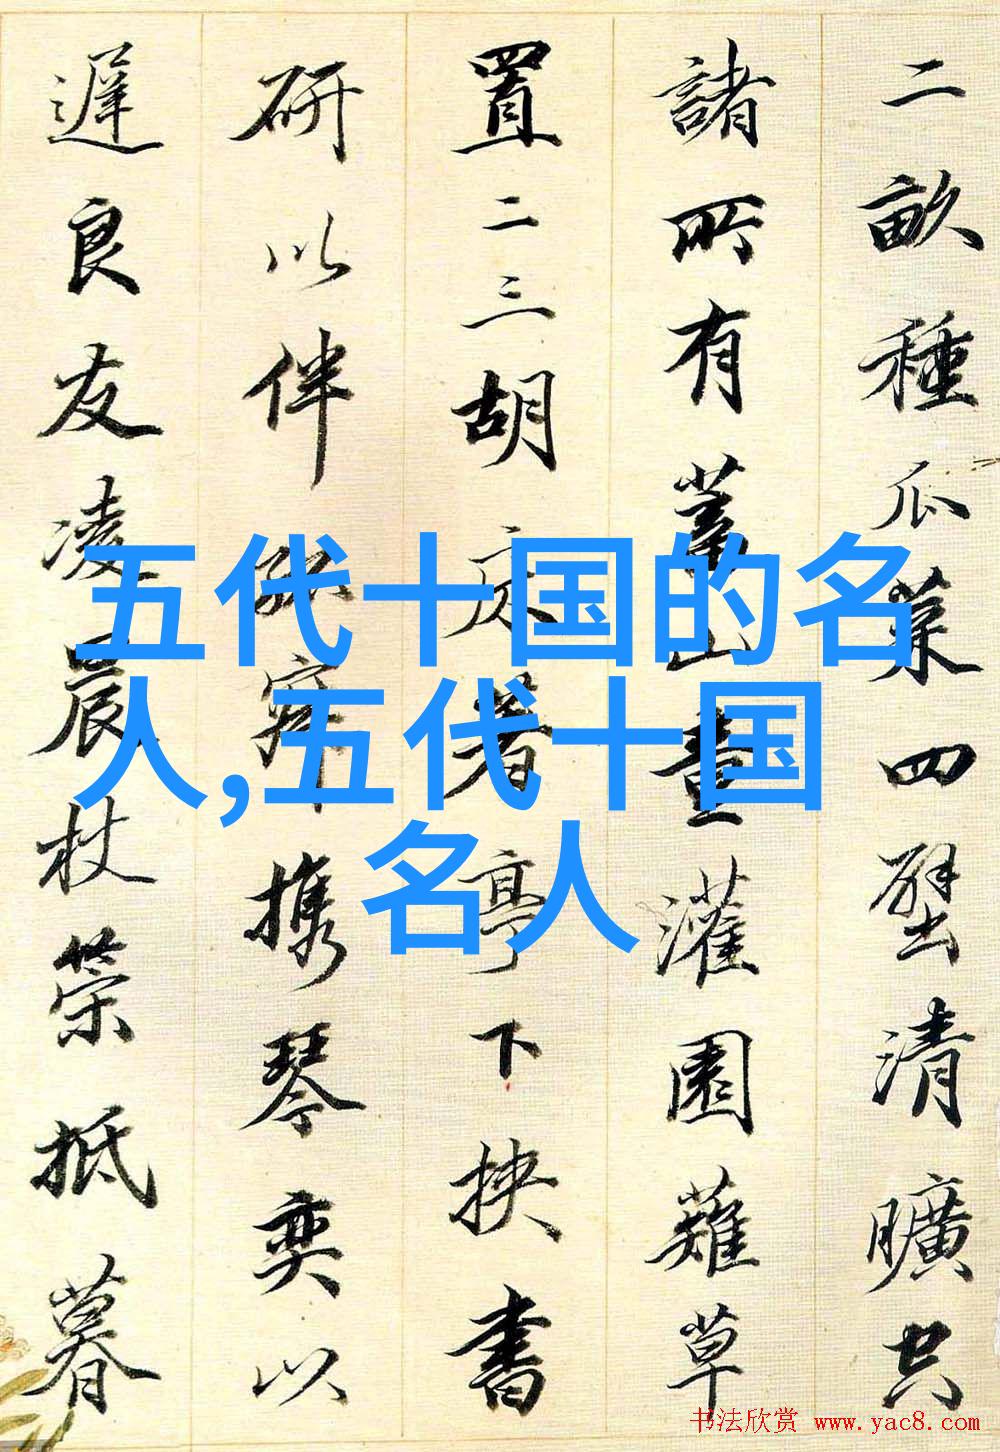 二畝種瓜菜四壁清曠共
諸所有蓄山畫灌園薙草
置二三胡床著亭下挾書
研以伴孤寂携琴奕以
遲良友凌晨杖策抵暮
五代十国的名
人,五代十国
名人
书法欣赏 www.yac8.com